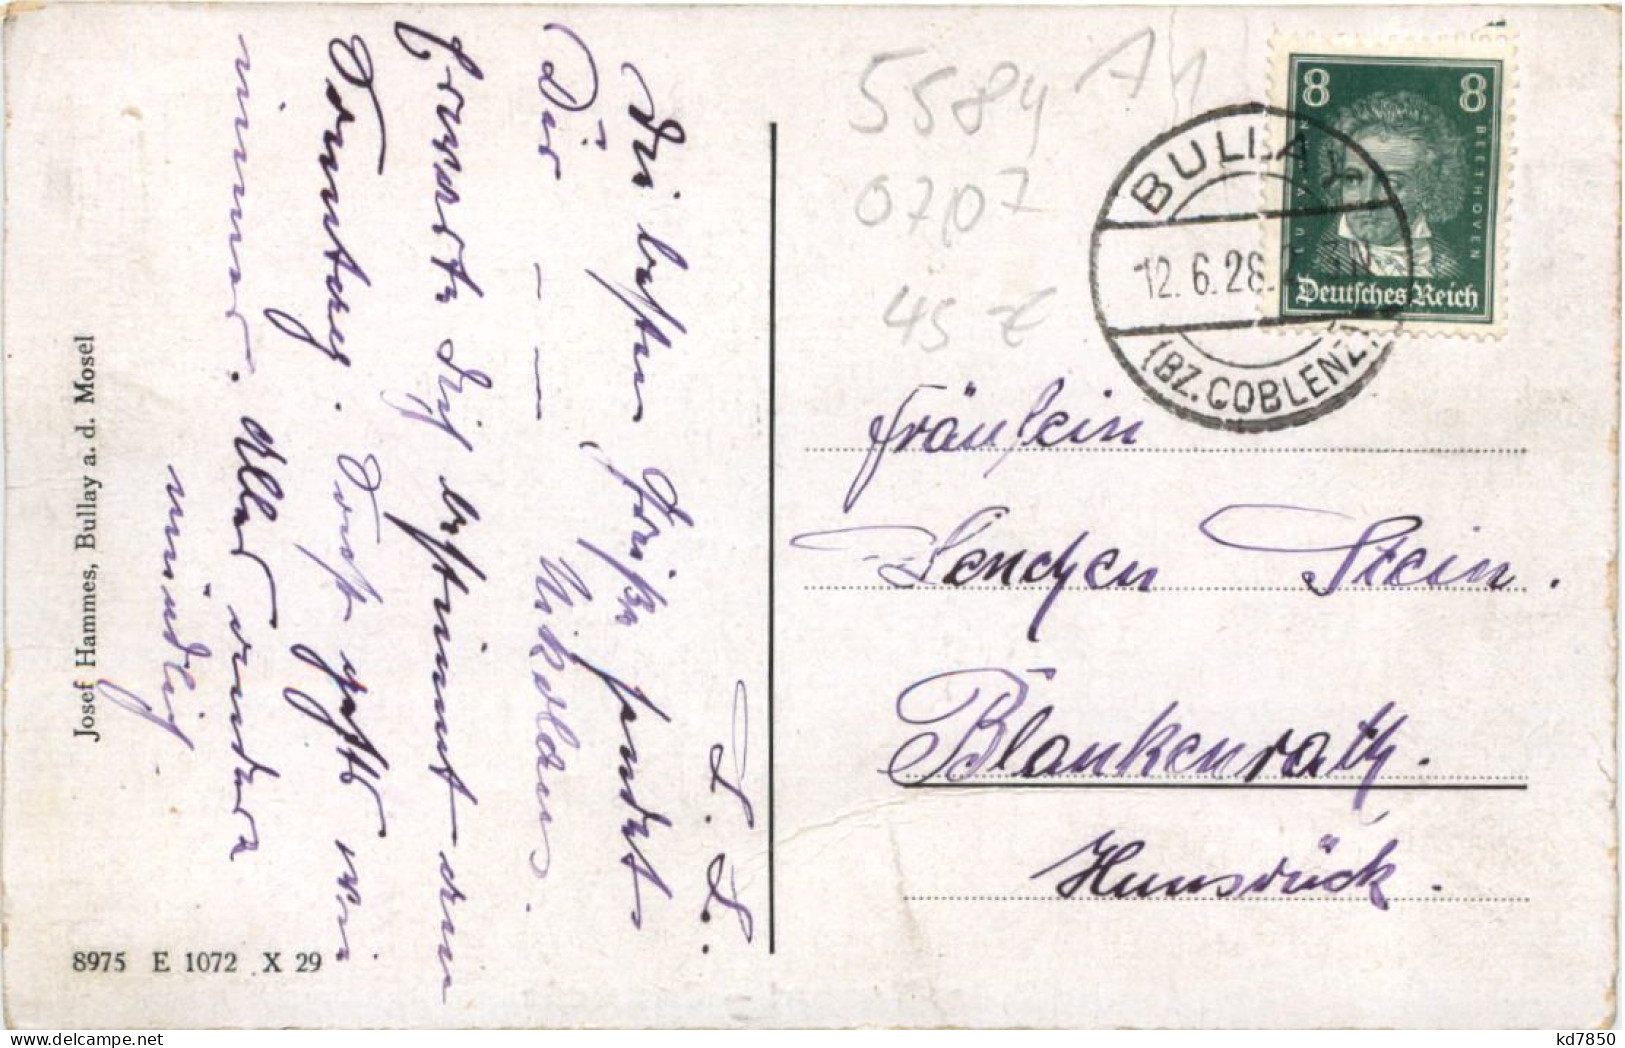 L. L.
Die besten Grüße sendet
Dir — — — Nikolaus.
Erwarte Dich bestimmt am
Sonntag.
immer. Alles andere
mündlich
Josef Hammes, Bullay a. d. Mosel
8975 E 1072 X 29
5584 A1
0707
45
8 8
LUDW. V. BEETHOVEN
Deutsches Reich
BULLAY
12. 6. 28.
(BZ. COBLENZ)
Fräulein
Lenchen Stein.
Blankenrath.
Hunsrück.
kd7850